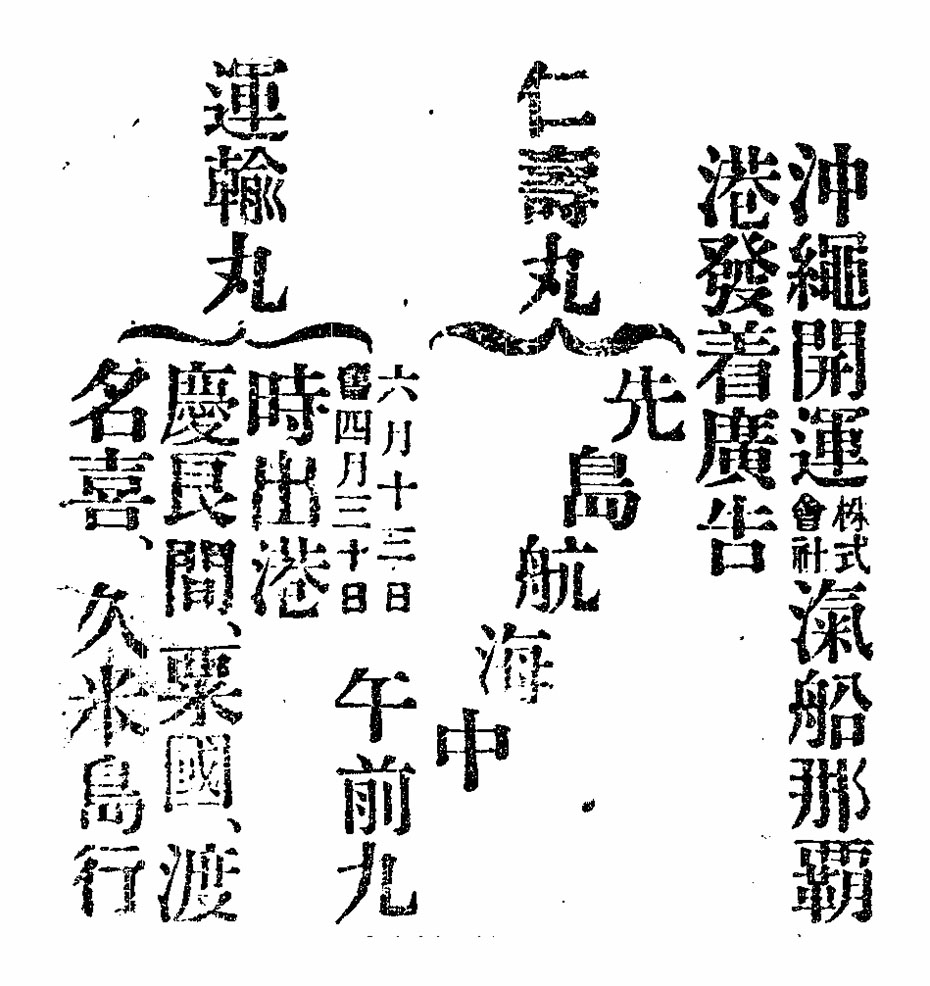 沖繩開運株式會社滊船那覇
港發着廣告
仁壽丸
先島航海中
運輸丸
六月十三日
舊四月三十日
午前九
時出港
慶良間、粟國、渡
名喜、久米島行